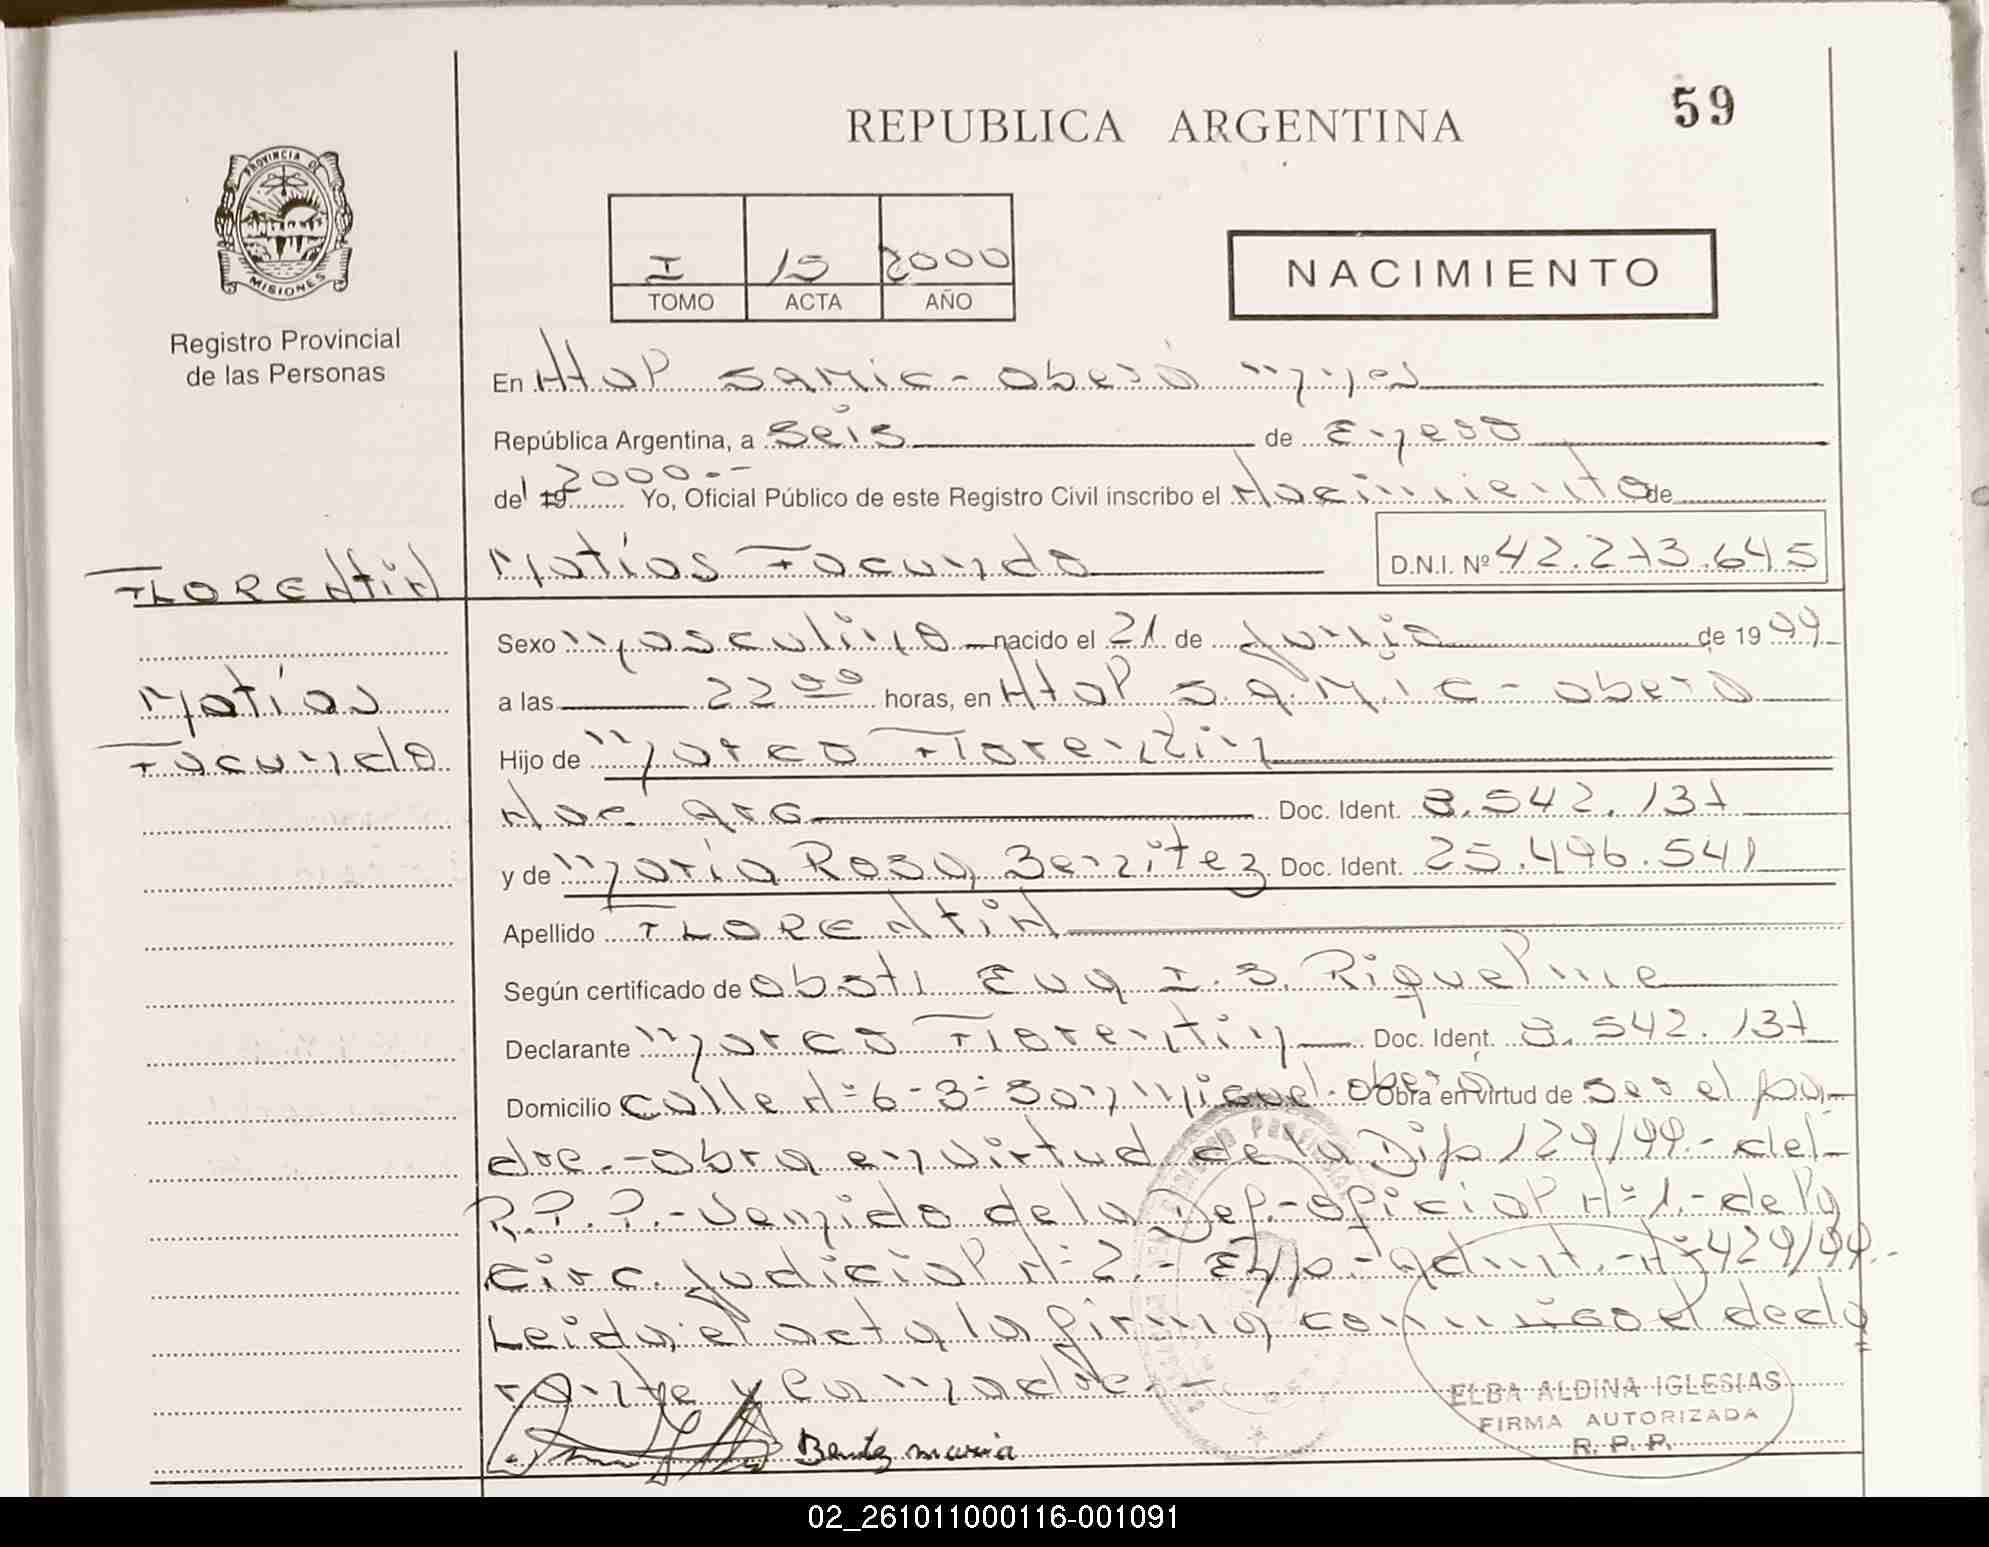 59
REPUBLICA ARGENTINA
PROVINCIA DE
MISIONES
Registro Provincial
de las Personas
I 15 2000
TOMO ACTA AÑO
NACIMIENTO
En Htal SAMIC - Oberá Mnes
República Argentina, a Seis de Enero
del 19 2000.- Yo, Oficial Público de este Registro Civil inscribo el Nacimiento de
FLORENTIN Matías Facundo D.N.I. Nº 42.273.645
Sexo Masculino nacido el 21 de Junio de 1999
Matías
a las 22 00 horas, en Htal SAMIC - Oberá
Facundo
Hijo de Marco Florentin
Nac. Arg Doc. Ident. 8.542.137
y de María Rosa Benitez Doc. Ident. 25.496.541
Apellido FLORENTIN
Según certificado de Obst. Eva I. S. Riquelme
Declarante Marco Florentin Doc. Ident. 8.542.137
Domicilio Calle Nº 6 - 3 - San Miguel - Oberá Obra en virtud de ser el pa-
dre.- Obra en virtud de la Disp 129/99.- del
R.P.P.- Venido de la Def.- Oficial Nº 1.- de la
Circ. Judicial Nº 2.- Exp.- Admt.- Nº 429/99.-
Leída el acta la firma conmigo el decla
rante y la madre.-
Benitez maria
ELBA ALDINA IGLESIAS
FIRMA AUTORIZADA
R. P. P.
02_261011000116-001091